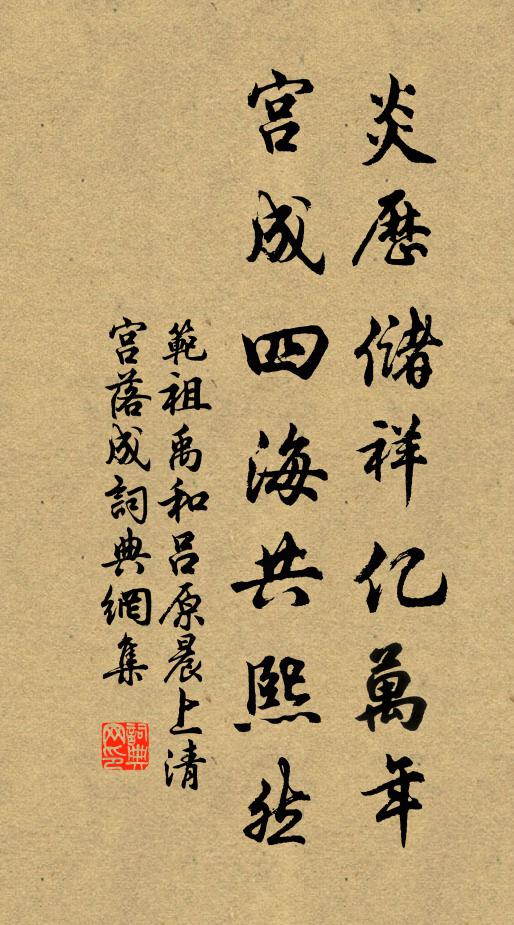 炎歷儲祥亿萬年
宫成四海共熙然
範祖禹和吕原晨上清
宫落成詞典網集
詞典網印